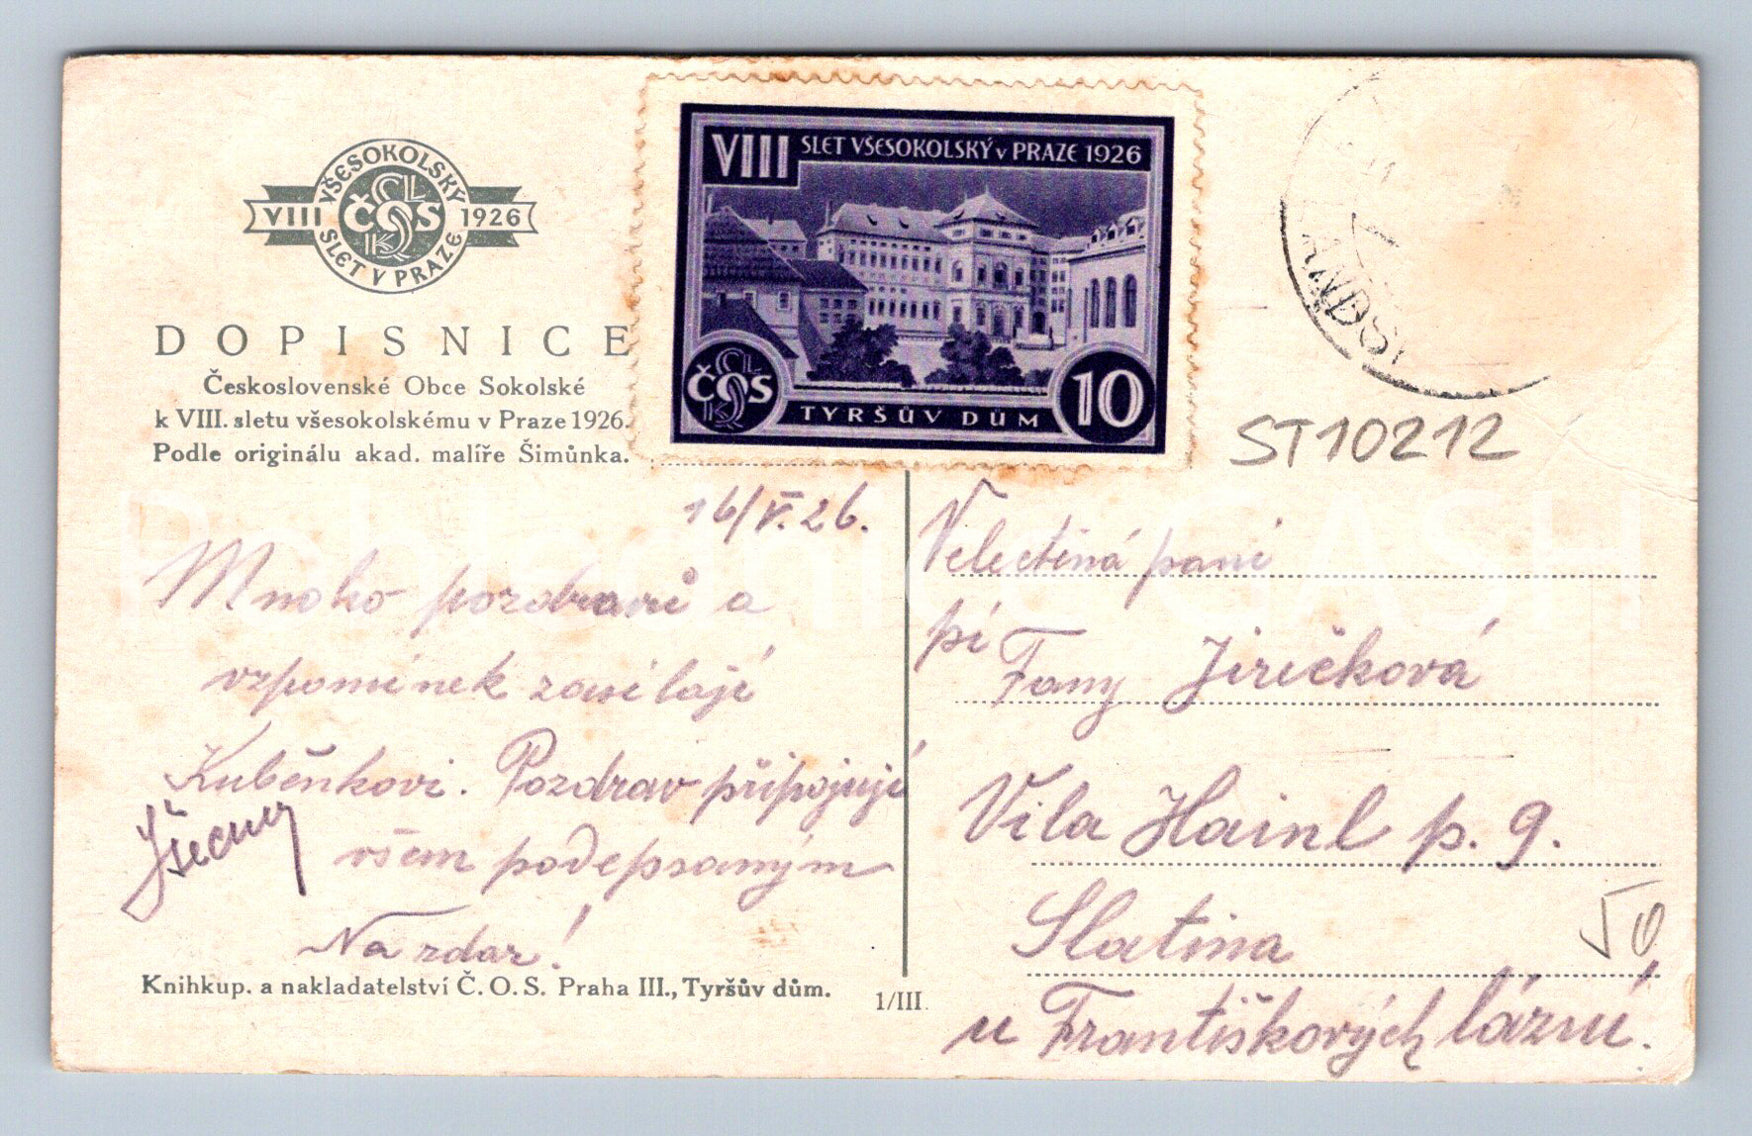 VŠESOKOLSKÝ
VIII ČOS 1926
SLET V PRAZE
DOPISNICE
Československé Obce Sokolské
k VIII. sletu všesokolskému v Praze 1926.
Podle originálu akad. malíře Šimůnka.
VIII SLET VŠESOKOLSKÝ v PRAZE 1926
ČOS
TYRŠŮV DŮM
10
ST10212
16/V. 26.
Mnoho pozdravů a
vzpomínek zasílají
Kuběnkovi. Pozdrav připojuji
všem podepsaným
Na zdar!
Knihkup. a nakladatelství Č. O. S. Praha III., Tyršův dům.
1/III.
Velectěná paní
pí
Fany Jiričková
Vila Hainl p. 9.
Slatina
u Františkových lázní.